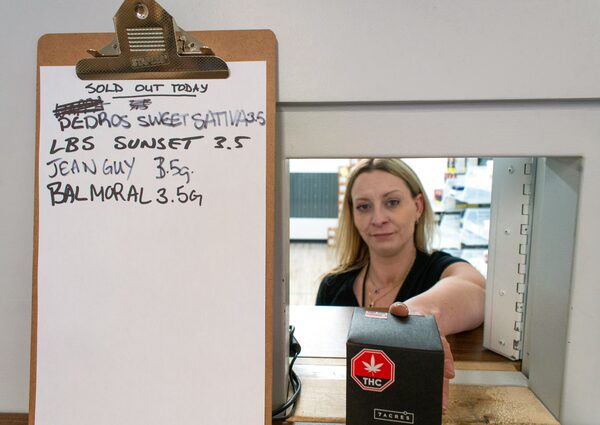 SOLD OUT TODAY
3.5
PEDROS SWEET SATIVA 3.5
LBS SUNSET 3.5
JEAN GUY 3.5g.
BALMORAL 3.5G
THC
7ACRES